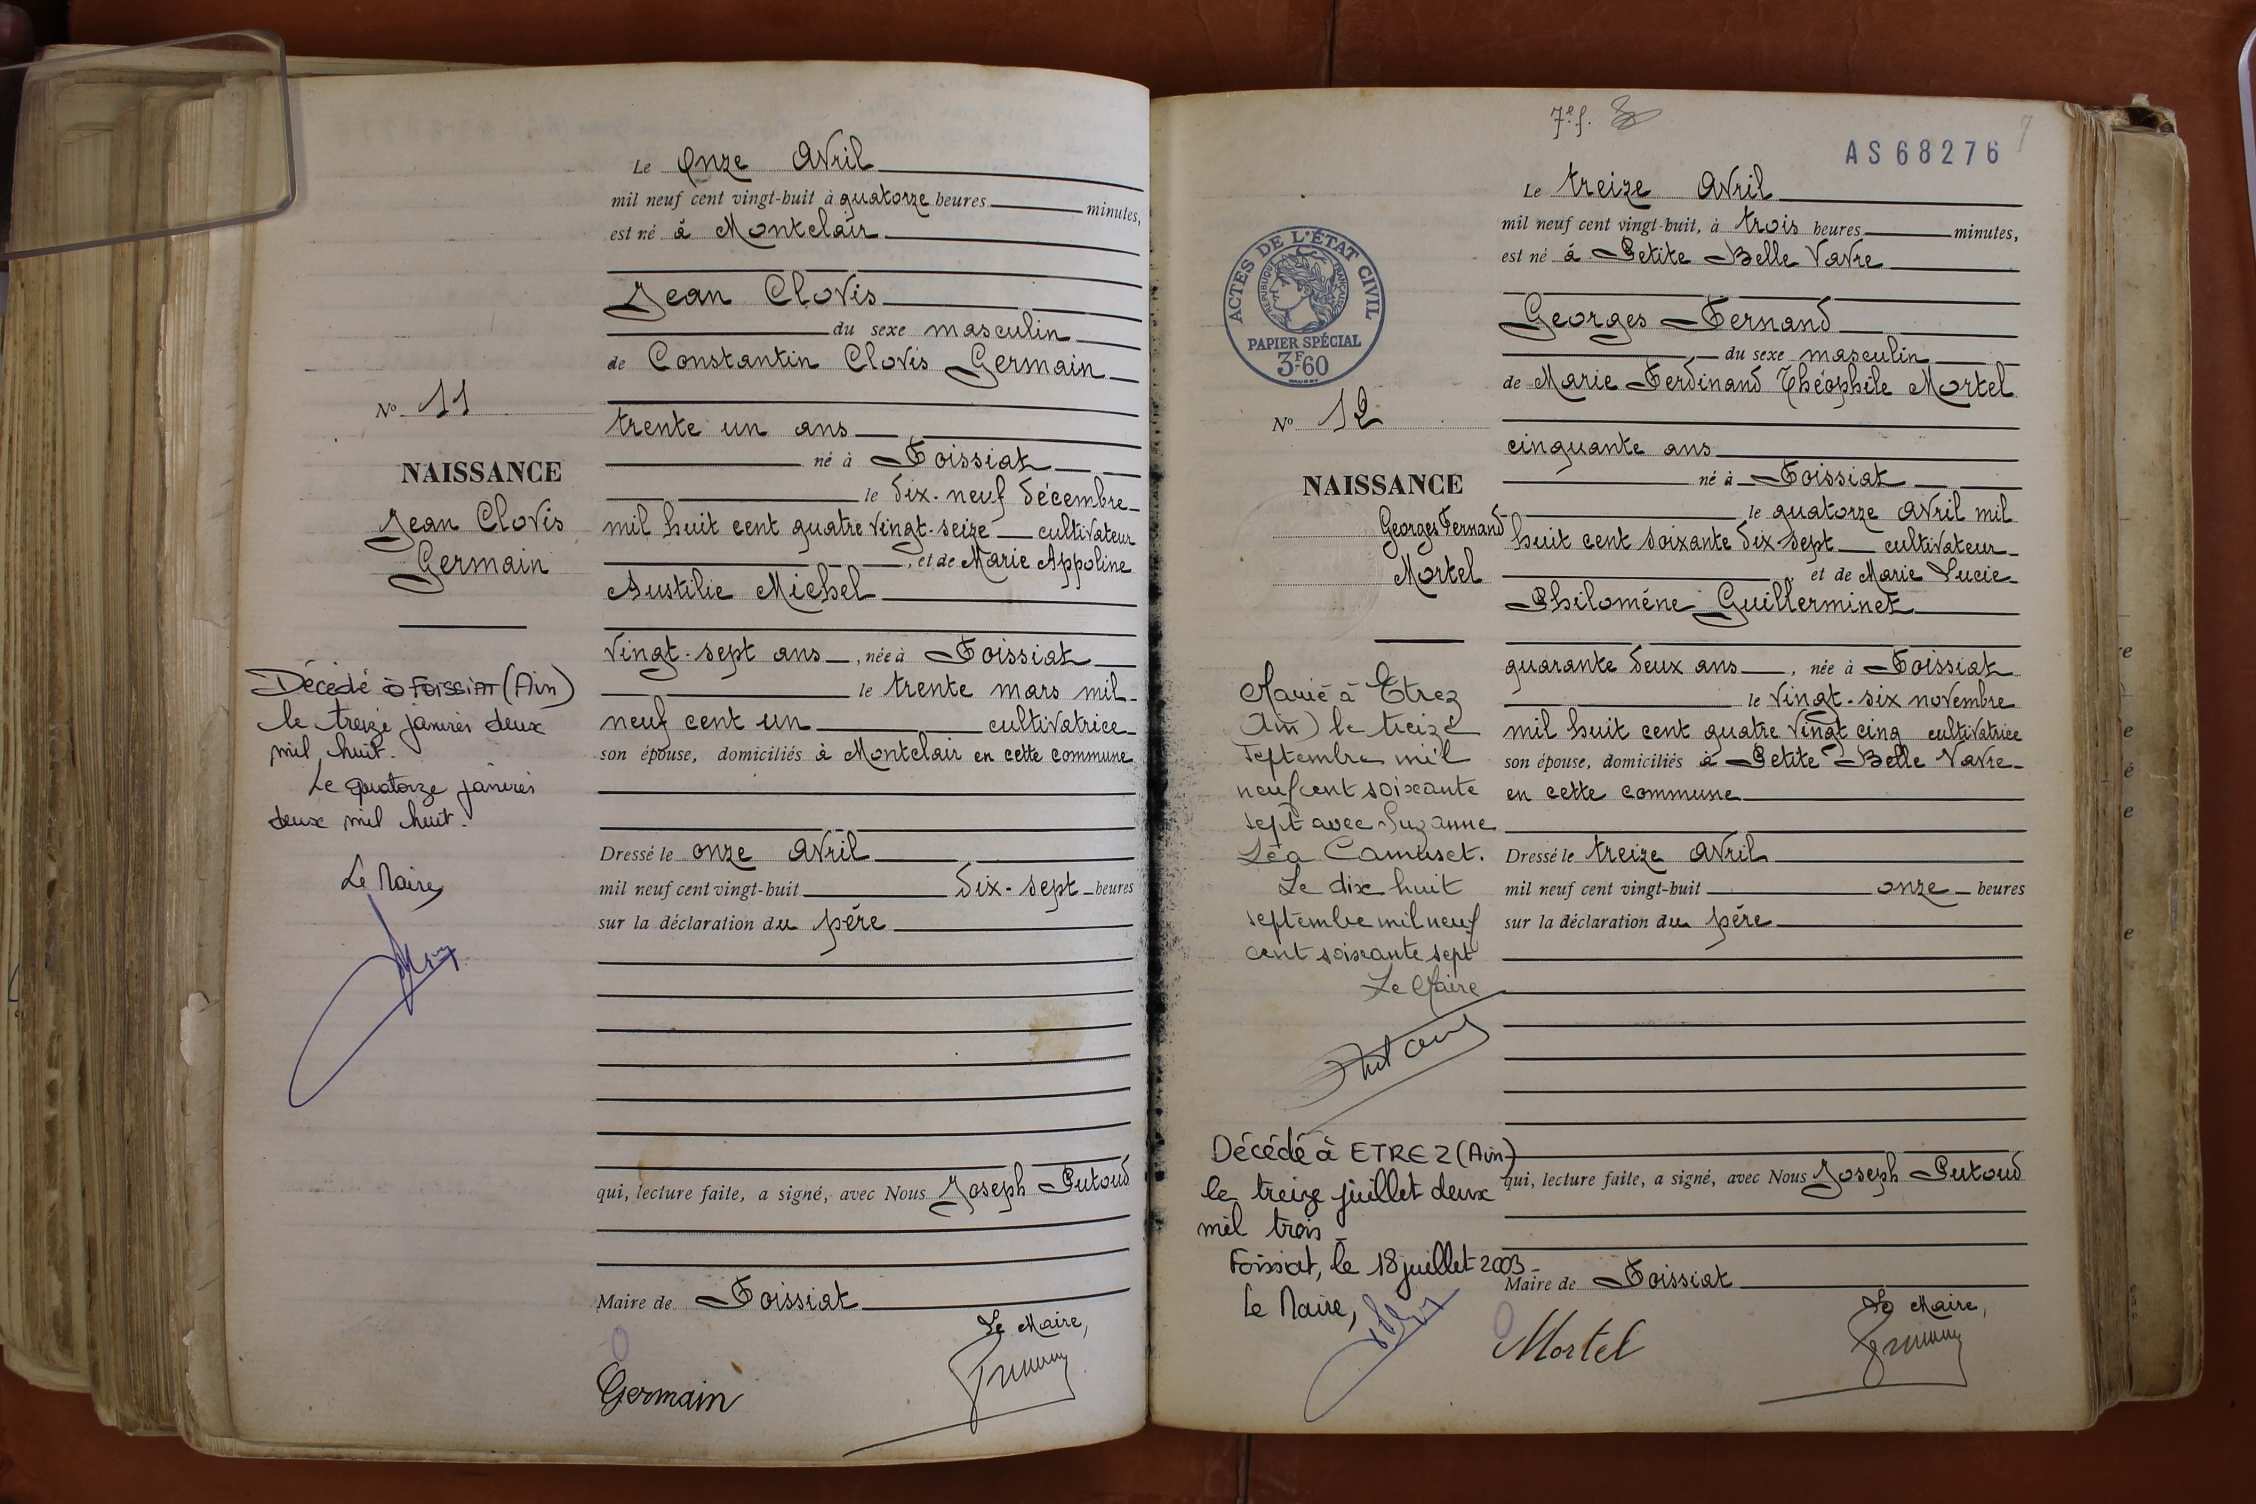 Le Onze Avril
mil neuf cent vingt-huit à quatorze heures minutes,
est né à Montclair
Jean Clovis
du sexe masculin
de Constantin Clovis Germain
trente un ans
né à Foissiat
le dix-neuf décembre
mil huit cent quatre vingt-seize cultivateur
, et de Marie Appoline
Austilie Michel
vingt-sept ans, née à Foissiat
le trente mars mil
neuf cent un cultivatrice
son épouse, domiciliés à Montclair en cette commune
Dressé le onze Avril
mil neuf cent vingt-huit dix-sept heures
sur la déclaration du père
qui, lecture faite, a signé, avec Nous Joseph Putoud
Maire de Foissiat
Le Maire,
Germain
No 11
NAISSANCE
Jean Clovis
Germain
Décédé à FOISSIAT (Ain)
le treize janvier deux
mil huit.
Le quatorze janvier
deux mil huit.
Le Maire
7e f.
AS68276
7
Le treize Avril
mil neuf cent vingt-huit, à trois heures minutes,
est né à Petite Belle Vavre
Georges Fernand
du sexe masculin
de Marie Ferdinand Théophile Mortel
cinquante ans
né à Foissiat
le quatorze Avril mil
huit cent soixante dix-sept cultivateur
, et de Marie Lucie
Philomène Guillerminet
quarante deux ans, née à Foissiat
le vingt-six novembre
mil huit cent quatre vingt cinq cultivatrice
son épouse, domiciliés à Petite Belle Vavre
en cette commune
Dressé le treize Avril
mil neuf cent vingt-huit onze heures
sur la déclaration du père
qui, lecture faite, a signé, avec Nous Joseph Putoud
Maire de Foissiat
Le Maire,
Mortel
ACTES DE L'ÉTAT CIVIL
RÉPUBLIQUE FRANÇAISE
PAPIER SPÉCIAL
3F.60
No 12
NAISSANCE
Georges Fernand
Mortel
Marié à Etrez
Ain) le treize
septembre mil
neuf cent soixante
sept avec Suzanne
Léa Camuset.
Le dix huit
septembre mil neuf
cent soixante sept
Le Maire
Décédé à ETREZ (Ain)
le treize juillet deux
mil trois
Foissiat, le 18 juillet 2003
Le Maire,